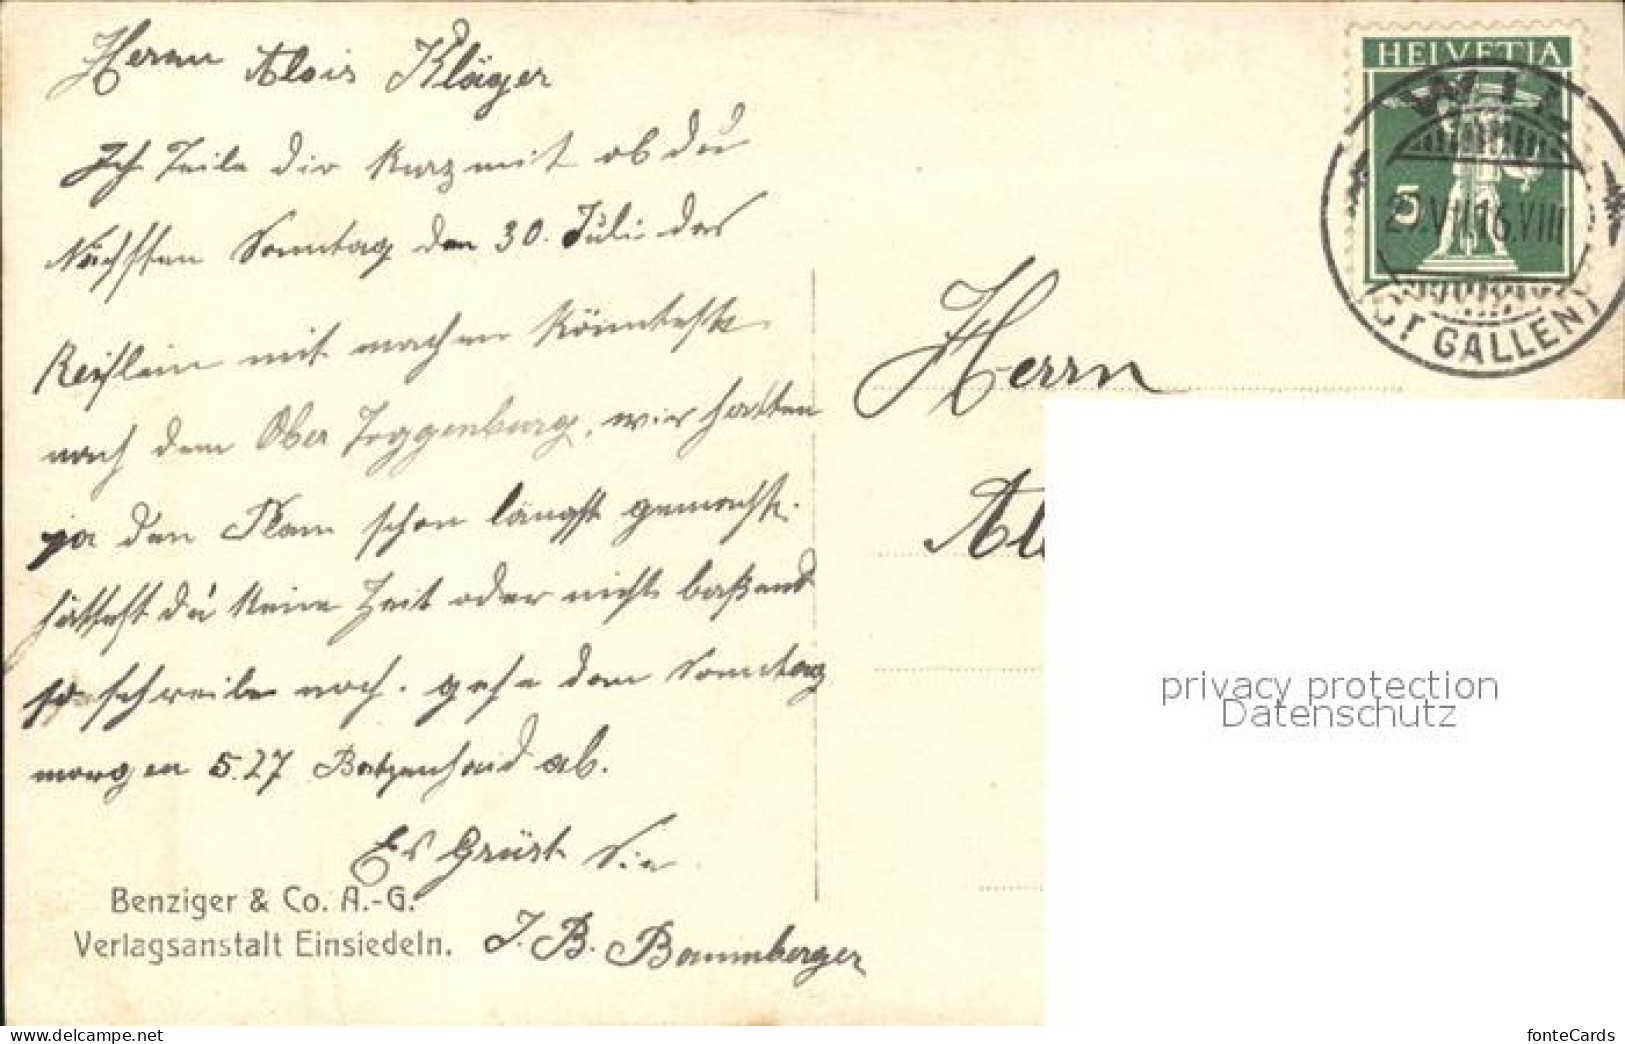 Herrn Alois Kläger
Ich Teile dir kurz mit ob du
Nächsten Sonntag den 30. Juli das
Reislein mit machen könntest
nach dem Ober Toggenburg, wir hatten
ja den Plan schon längst gemacht.
hättest du keine Zeit oder nicht baßend
so schreibe noch. gehe den Sonntag
morgen 5.27 Batzenhaid ab.
Es Grüst Sie
J. B. Baumberger
Benziger & Co. A.-G.
Verlagsanstalt Einsiedeln.
HELVETIA
5
WIL
VII.16.VIII
(ST GALLEN)
Herrn
Al
privacy protection
Datenschutz
www.delcampe.net
fonteCards